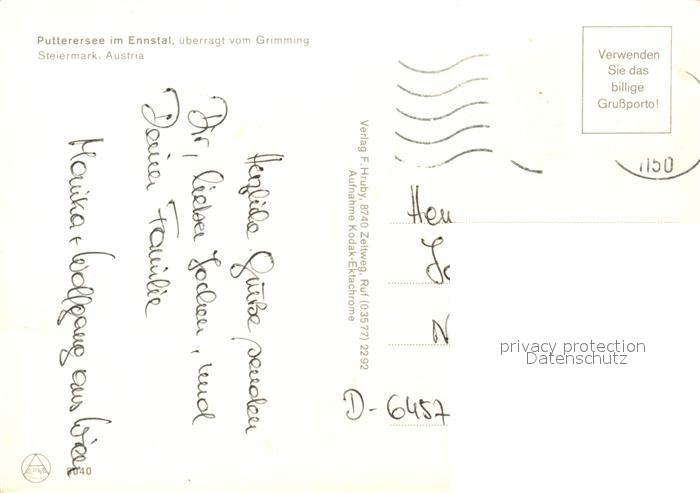 Putterersee im Ennstal, überragt vom Grimming
Steiermark, Austria
Verwenden
Sie das
billige
Grußporto!
1150
Herzliche Grüße senden
Dir, lieber Jochen, und
Deiner Familie
Monika + Wolfgang aus Wien
Verlag F. Hruby, 8740 Zeltweg, Ruf (03577) 2292
Aufnahme Kodak-Ektachrome
D-6457
privacy protection
Datenschutz
8040